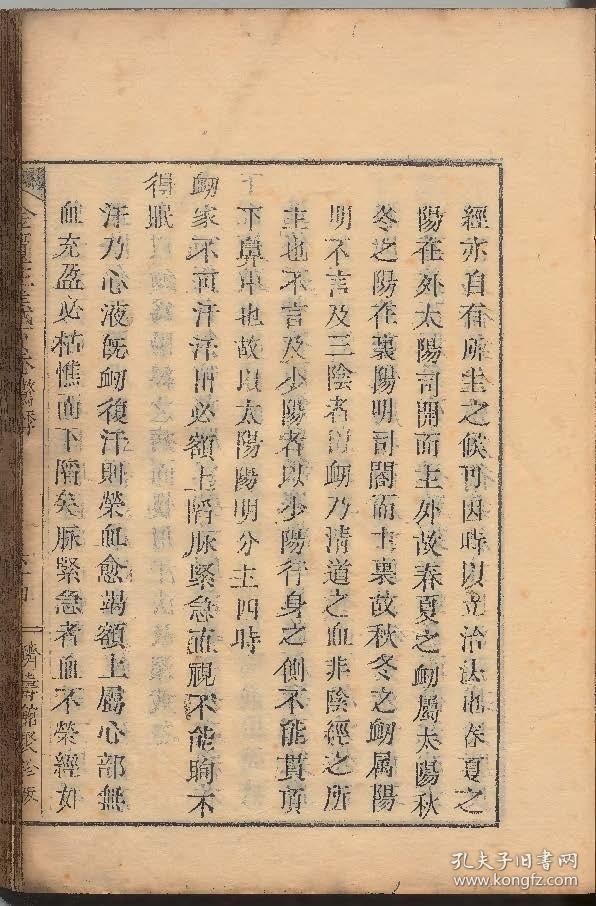 經亦自有所主之候可因時以立治法也春夏之
陽在外太陽司開而主外故春夏之衂屬太陽秋
冬之陽在裏陽明司闔而主裏故秋冬之衂屬陽
明不言及三陰者謂衂乃清道之血非陰經之所
主也不言及少陽者以少陽行身之側不能貫頂
下鼻中也故以太陽陽明分主四時
衂家不可汗汗出必額上陷脉緊急直視不能眴不
得眠
汗乃心液旣衂復汗則榮血愈竭額上屬心部無
血充盈必枯憔而下陷矣脉緊急者血不榮經如
金匱 卷
濟壽館聚珍版
孔夫子旧书网
www.kongfz.com